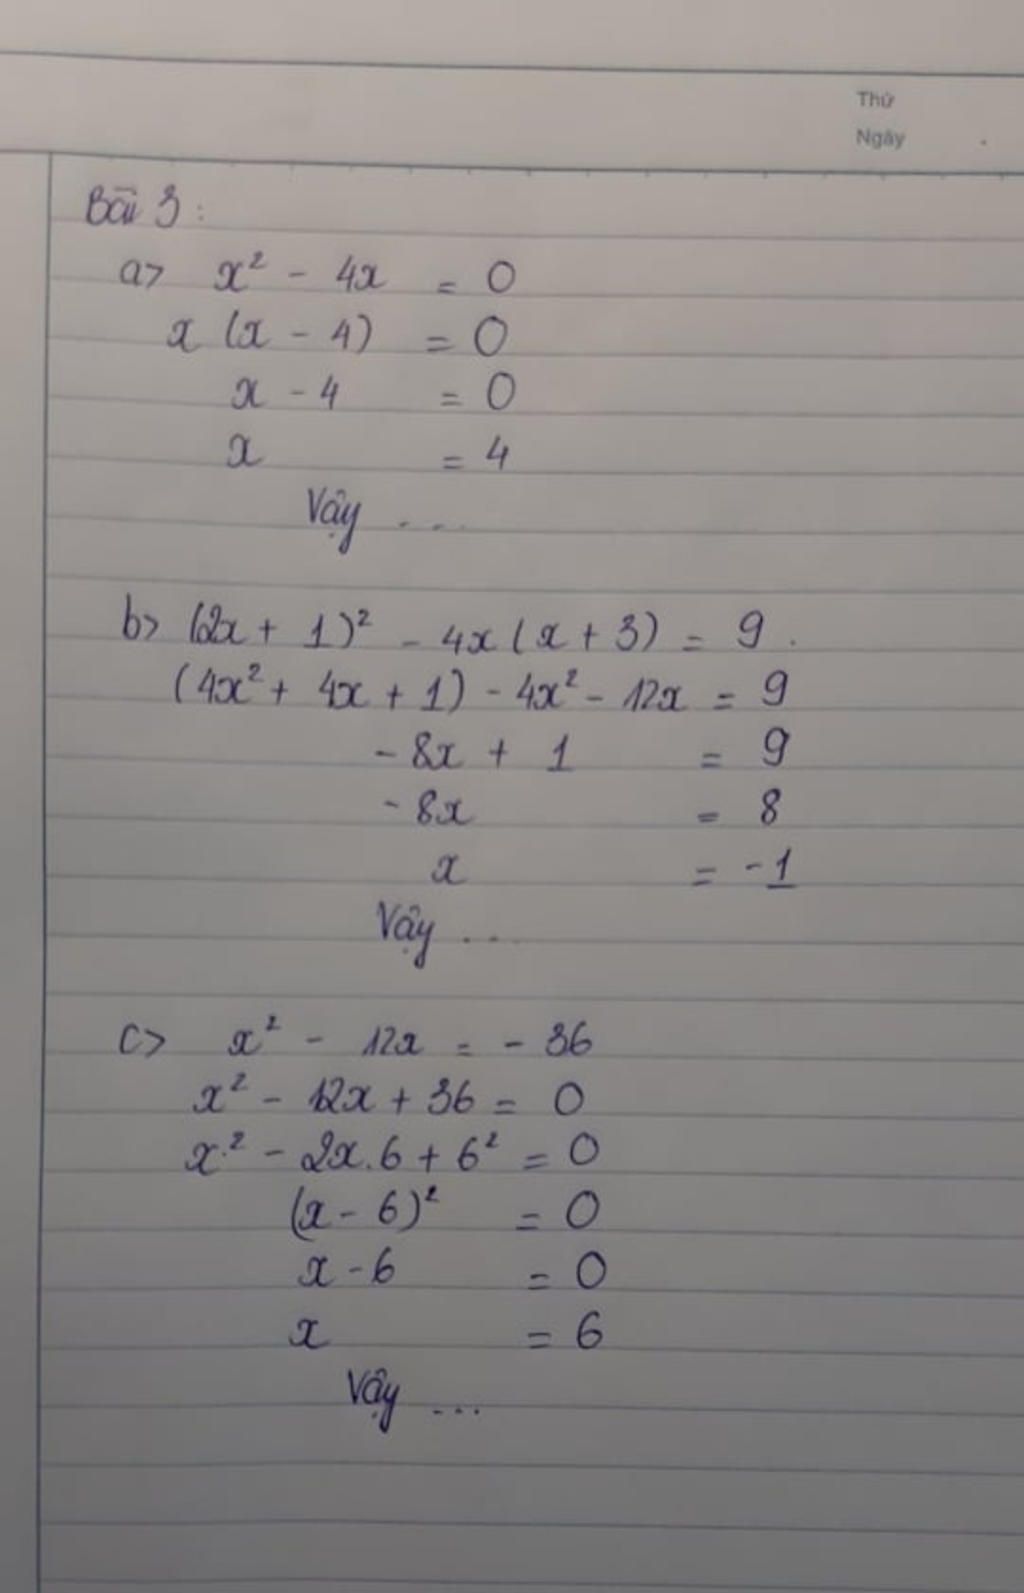 Thứ
Ngày
Bài 3:
a> x² - 4x = 0
x (x - 4) = 0
x - 4 = 0
x = 4
Vậy ...
b> (2x + 1)² - 4x (x + 3) = 9.
(4x² + 4x + 1) - 4x² - 12x = 9
- 8x + 1 = 9
- 8x = 8
x = -1
Vậy ...
c> x² - 12x = - 36
x² - 12x + 36 = 0
x² - 2x.6 + 6² = 0
(x - 6)² = 0
x - 6 = 0
x = 6
Vậy ...